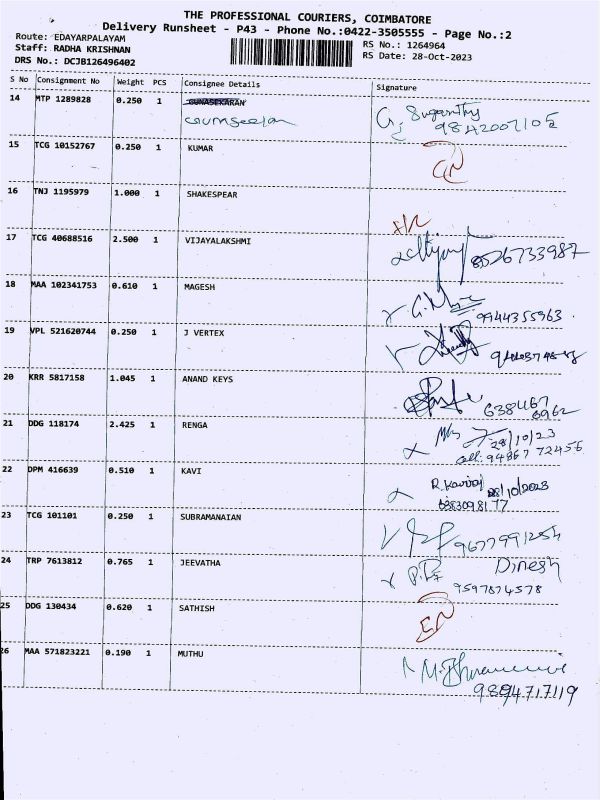 THE PROFESSIONAL COURIERS, COIMBATORE
Delivery Runsheet - P43 - Phone No.:0422-3505555 - Page No.:2
Route: EDAYARPALAYAM
Staff: RADHA KRISHNAN
RS No.: 1264964
DRS No.: DCJB126496402
RS Date: 28-Oct-2023
S No Consignment No Weight PCS Consignee Details Signature
14 MTP 1289828 0.250 1 GUNASEKARAN
G. Suganthy
9842007105
15 TCG 10152767 0.250 1 KUMAR
16 TNJ 1195979 1.000 1 SHAKESPEAR
17 TCG 40688516 2.500 1 VIJAYALAKSHMI
8526733987
18 MAA 102341753 0.610 1 MAGESH
9944355963
19 VPL 521620744 0.250 1 J VERTEX
20 KRR 5817158 1.045 1 ANAND KEYS
638467
0962
21 DDG 118174 2.425 1 RENGA
28/10/23
cell: 94867 72456
22 DPM 416639 0.510 1 KAVI
28/10/2023
6383098177
23 TCG 101101 0.250 1 SUBRAMANAIAN
9677991254
24 TRP 7613812 0.765 1 JEEVATHA
Dinesh
9597874578
25 DDG 130434 0.620 1 SATHISH
26 MAA 571823221 0.190 1 MUTHU
9894717119